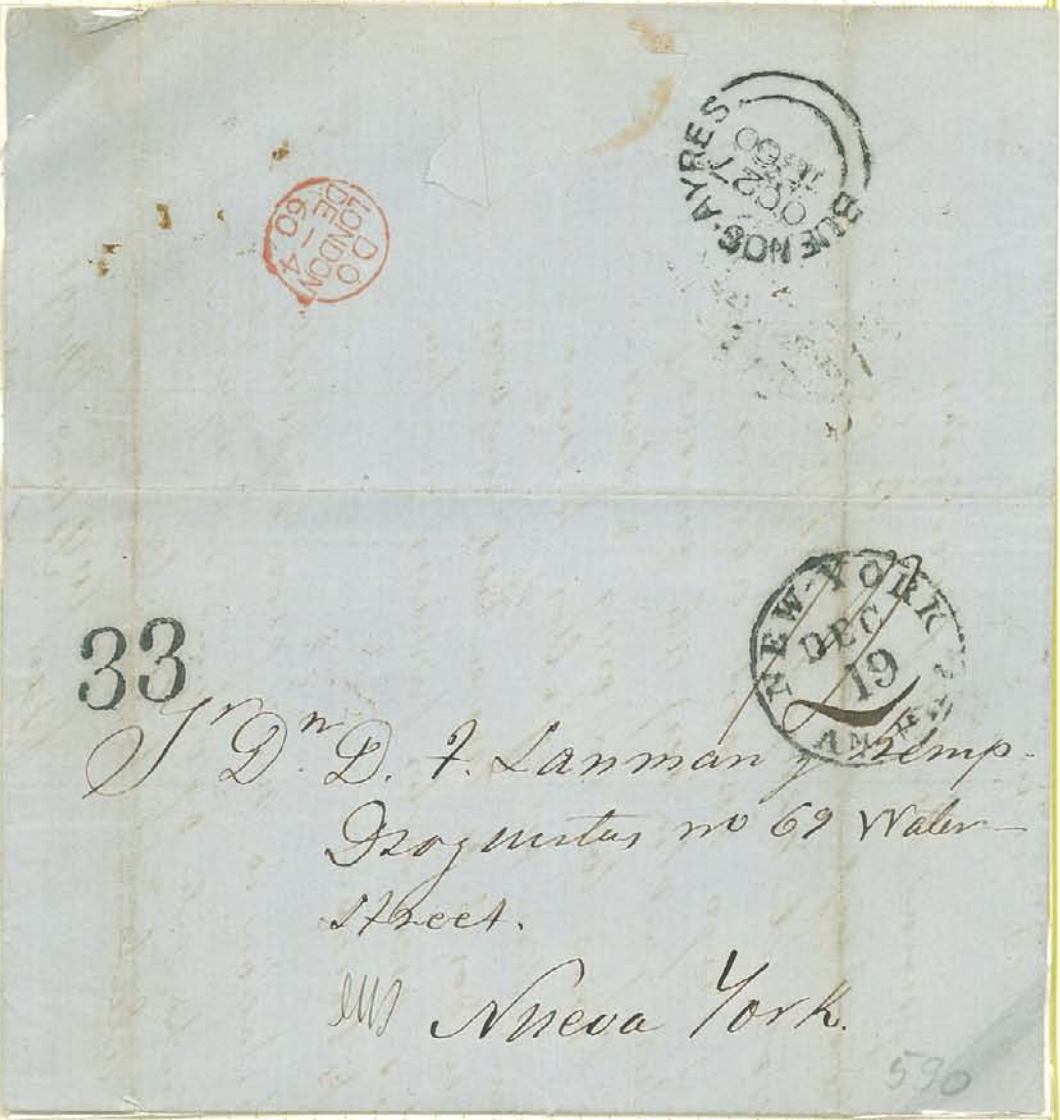 BUENOS·AYRES
OC 27
60
D O
LONDON
DE 4
60
NEW-YORK
DEC
19
AM.
33
Sr Dn D. F. Lanman y Kemp.
Droguistas no 69 Water
Street.
Nueva York.
590